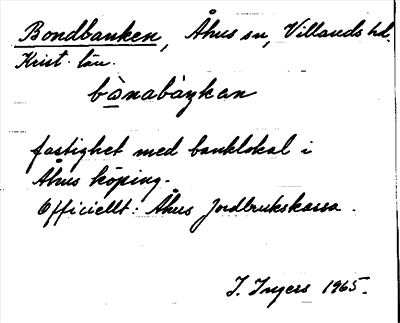 Bondbanken, Åhus sn, Villands hd.
Krist. län.
bònabàŋken
fastighet med banklokal i
Åhus köping.
Officiellt: Åhus Jordbrukskassa.
I. Ingers 1965.